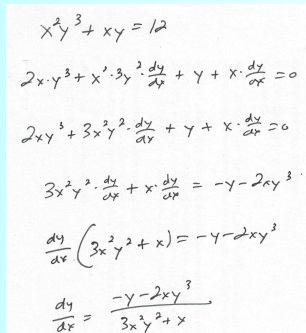 x²y³ + xy = 12
2x·y³ + x²·3y²·dy/dx + y + x·dy/dx = 0
2xy³ + 3x²y²·dy/dx + y + x·dy/dx = 0
3x²y²·dy/dx + x·dy/dx = -y-2xy³
dy/dx (3x²y² + x) = -y-2xy³
dy/dx = (-y-2xy³)/(3x²y² + x)